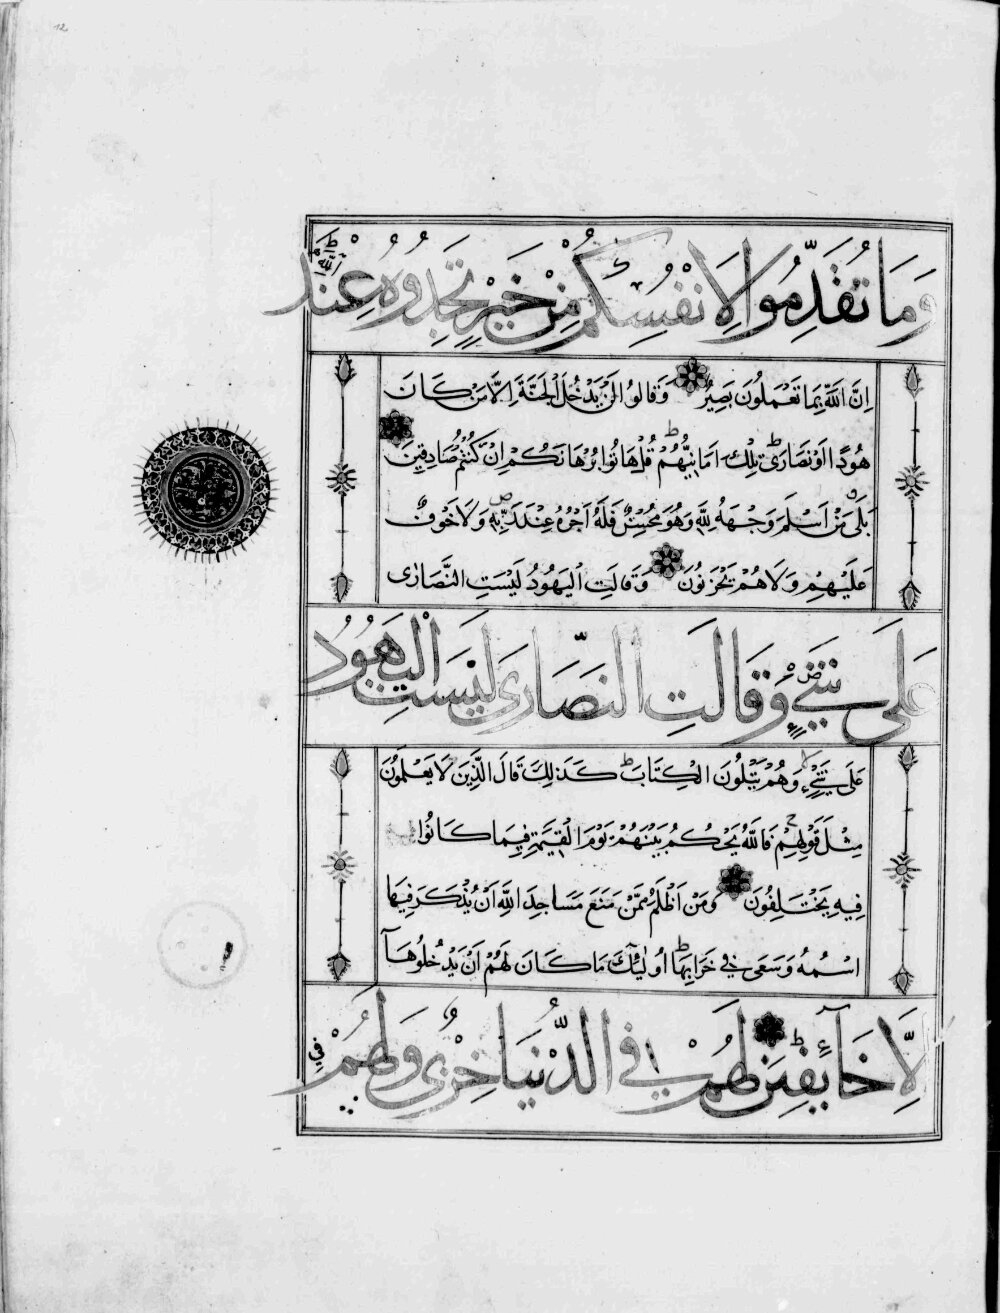 12
وَمَا تُقَدِّمُوا لِاَنْفُسِكُمْ مِنْ خَيْرٍ تَجِدُوهُ عِنْدَ اللّٰهِ
اِنَّ اللّٰهَ بِمَا تَعْمَلُونَ بَصِيرٌ وَقَالُوا لَنْ يَدْخُلَ الْجَنَّةَ اِلَّا مَنْ كَانَ
هُودًا اَوْ نَصَارَىٰ تِلْكَ اَمَانِيُّهُمْ قُلْ هَاتُوا بُرْهَانَكُمْ اِنْ كُنْتُمْ صَادِقِينَ
بَلَىٰ مَنْ اَسْلَمَ وَجْهَهُ لِلّٰهِ وَهُوَ مُحْسِنٌ فَلَهُ اَجْرُهُ عِنْدَ رَبِّهِ وَلَا خَوْفٌ
عَلَيْهِمْ وَلَا هُمْ يَحْزَنُونَ وَقَالَتِ الْيَهُودُ لَيْسَتِ النَّصَارَى
عَلَىٰ شَيْءٍ وَقَالَتِ النَّصَارَى لَيْسَتِ الْيَهُودُ
عَلَىٰ شَيْءٍ وَهُمْ يَتْلُونَ الْكِتَابَ كَذٰلِكَ قَالَ الَّذِينَ لَا يَعْلَمُونَ
مِثْلَ قَوْلِهِمْ فَاللّٰهُ يَحْكُمُ بَيْنَهُمْ يَوْمَ الْقِيٰمَةِ فِيمَا كَانُوا
فِيهِ يَخْتَلِفُونَ وَمَنْ اَظْلَمُ مِمَّنْ مَنَعَ مَسَاجِدَ اللّٰهِ اَنْ يُذْكَرَ فِيهَا
اسْمُهُ وَسَعَىٰ فِي خَرَابِهَا اُولٰئِكَ مَا كَانَ لَهُمْ اَنْ يَدْخُلُوهَا
اِلَّا خَآئِفِينَ لَهُمْ فِي الدُّنْيَا خِزْيٌ وَلَهُمْ فِي